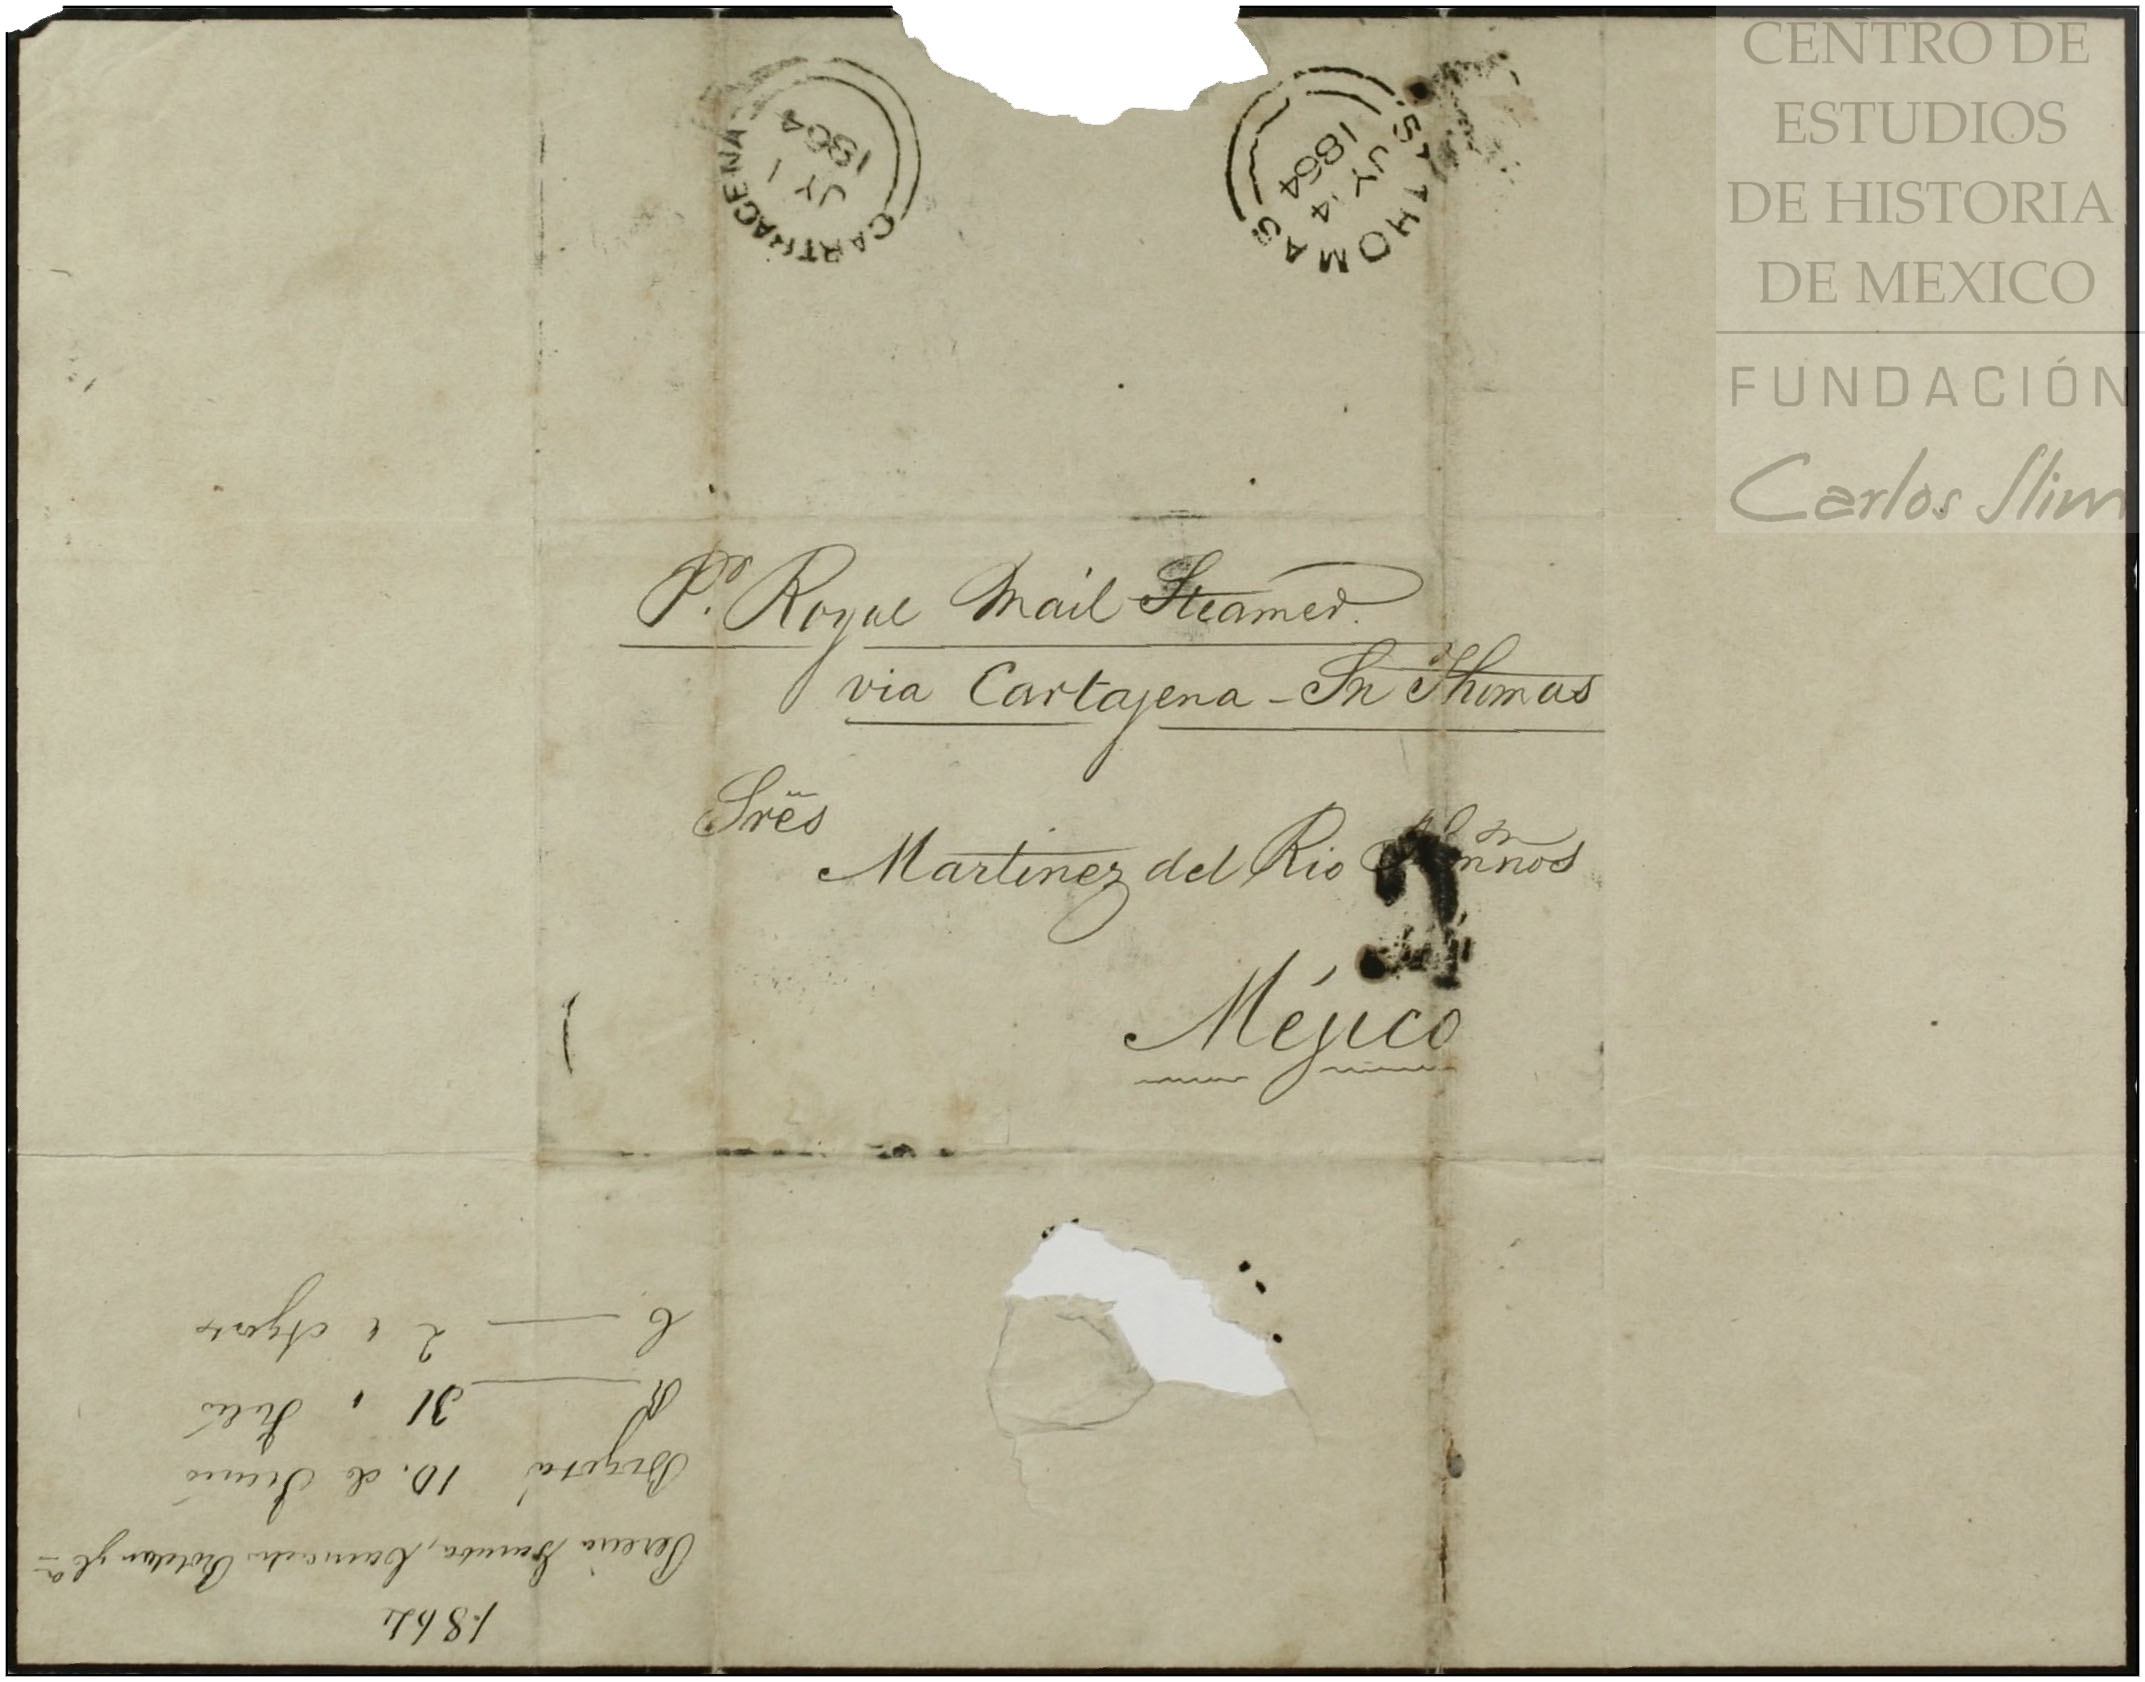 CARTHAGENA
JY 1
1864
ST THOMAS
JY 14
1864
CENTRO DE
ESTUDIOS
DE HISTORIA
DE MEXICO
FUNDACIÓN
Carlos Slim
Pr. Royal Mail Steamer.
via Cartajena - Sn Thomas
Sres
Martinez del Rio Hermnos
Méjico
1864
Pereira Gamba, Camacho Roldan y Ca
Bogotá 10. de Junio
R 31 " Julio
C 2 " Agosto